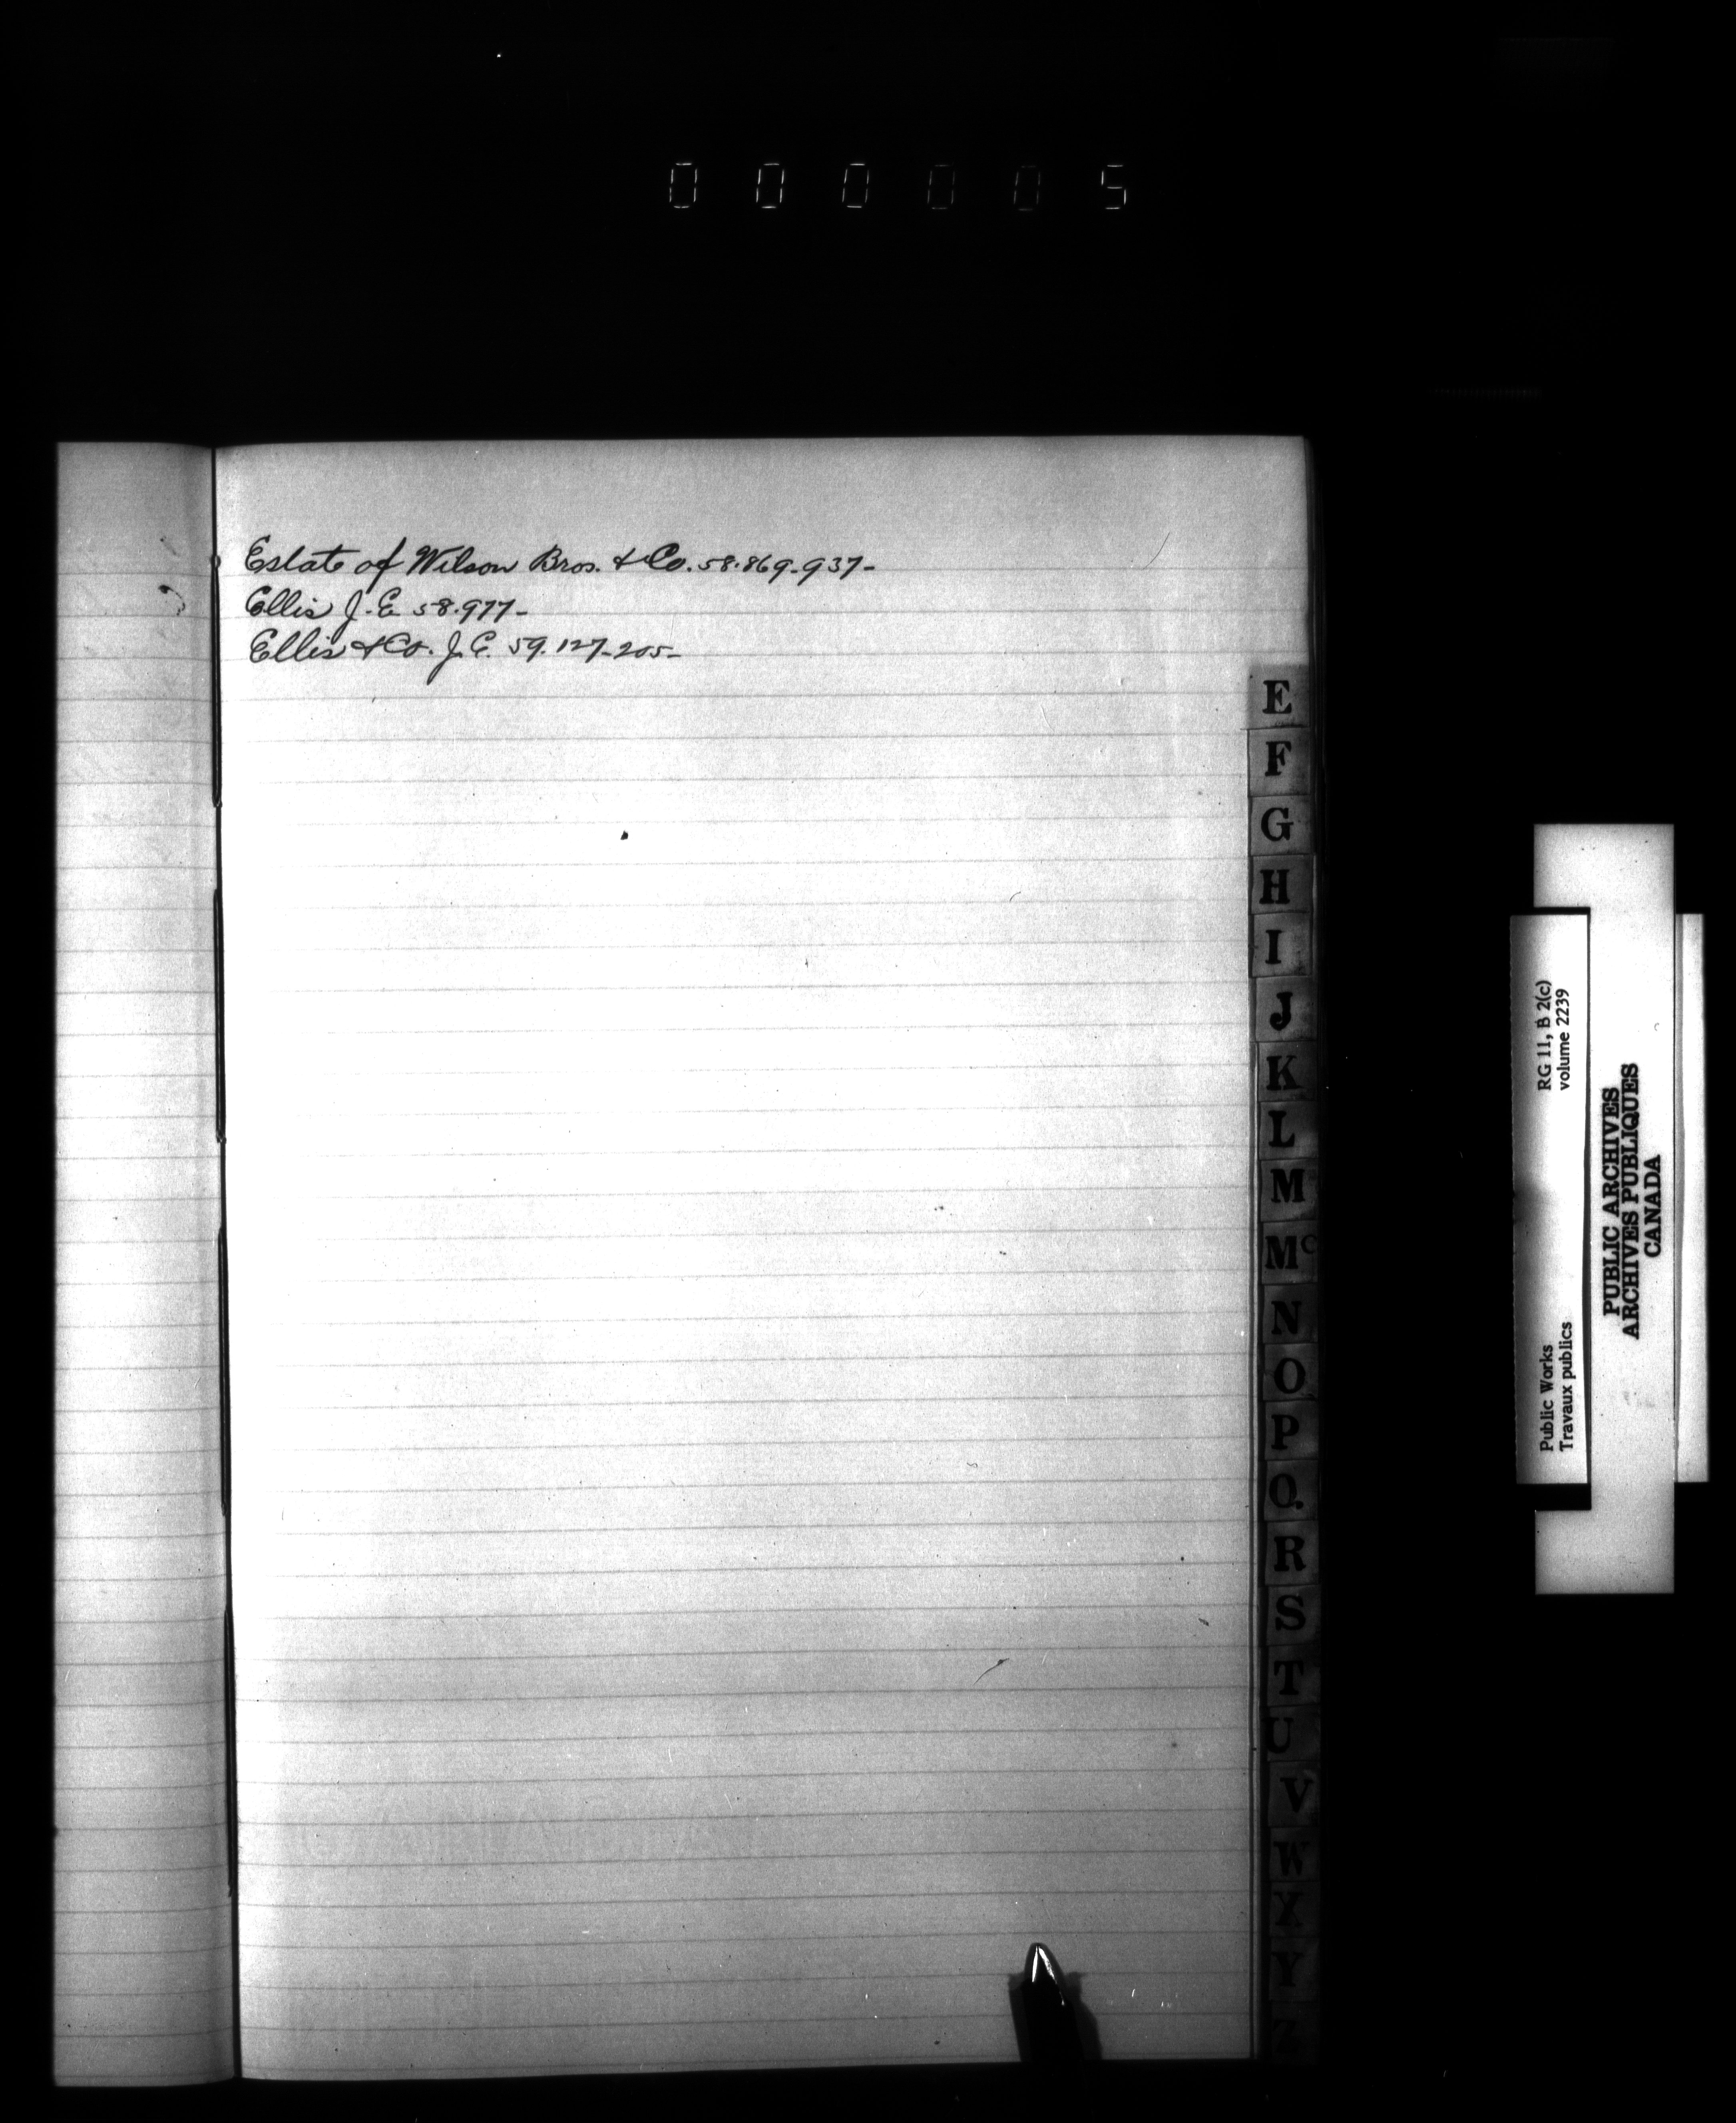 000005
Estate of Wilson Bros. & Co. 58.869-937-
Ellis J. E. 58.977-
Ellis & Co. J. E. 59.127-205-
E
F
G
H
I
J
K
L
M
Mc
N
O
P
Q
R
S
T
U
V
W
X
Y
Z
Public Works
Travaux publics
RG 11, B 2(c)
volume 2239
PUBLIC ARCHIVES
ARCHIVES PUBLIQUES
CANADA